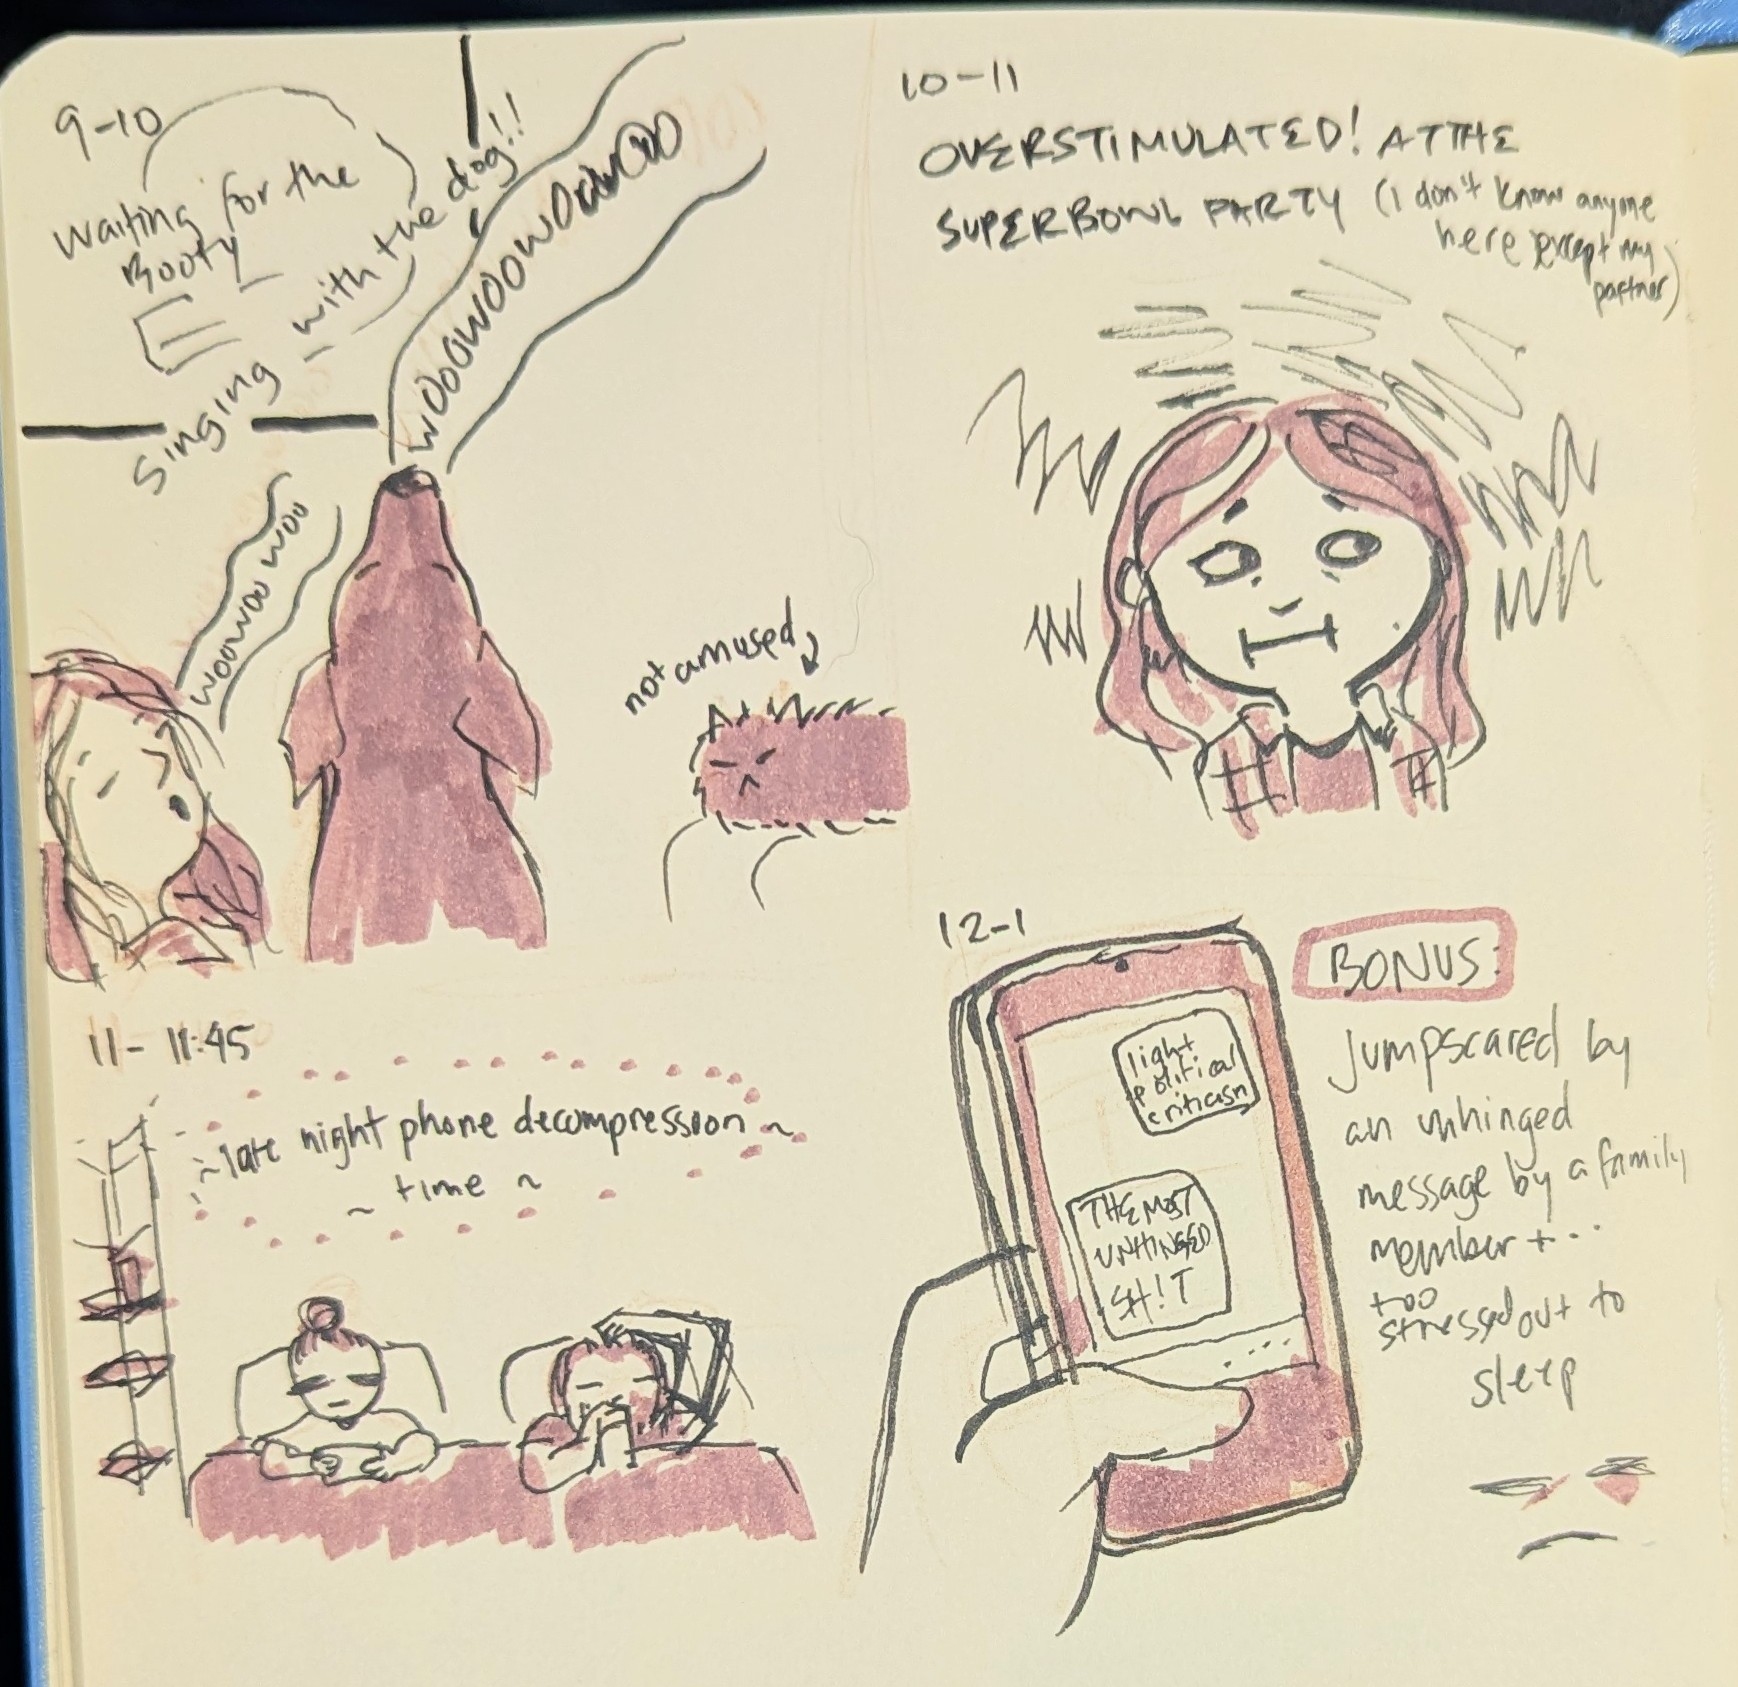 9-10
Waiting for the
Booty
Singing with the dog!!
WOOOWOOOWOOOWOOO
WOOWOOWOOWOO
not amused
10-11
OVERSTIMULATED! AT THE
SUPERBOWL PARTY (I don't know anyone
here except my
partner)
11- 11:45
~late night phone decompression~
~ time ~
12-1
light
political
criticism
THE MOST
UNHINGED
SH!T
BONUS:
Jumpscared by
an unhinged
message by a family
member +...
too
stressed out to
sleep